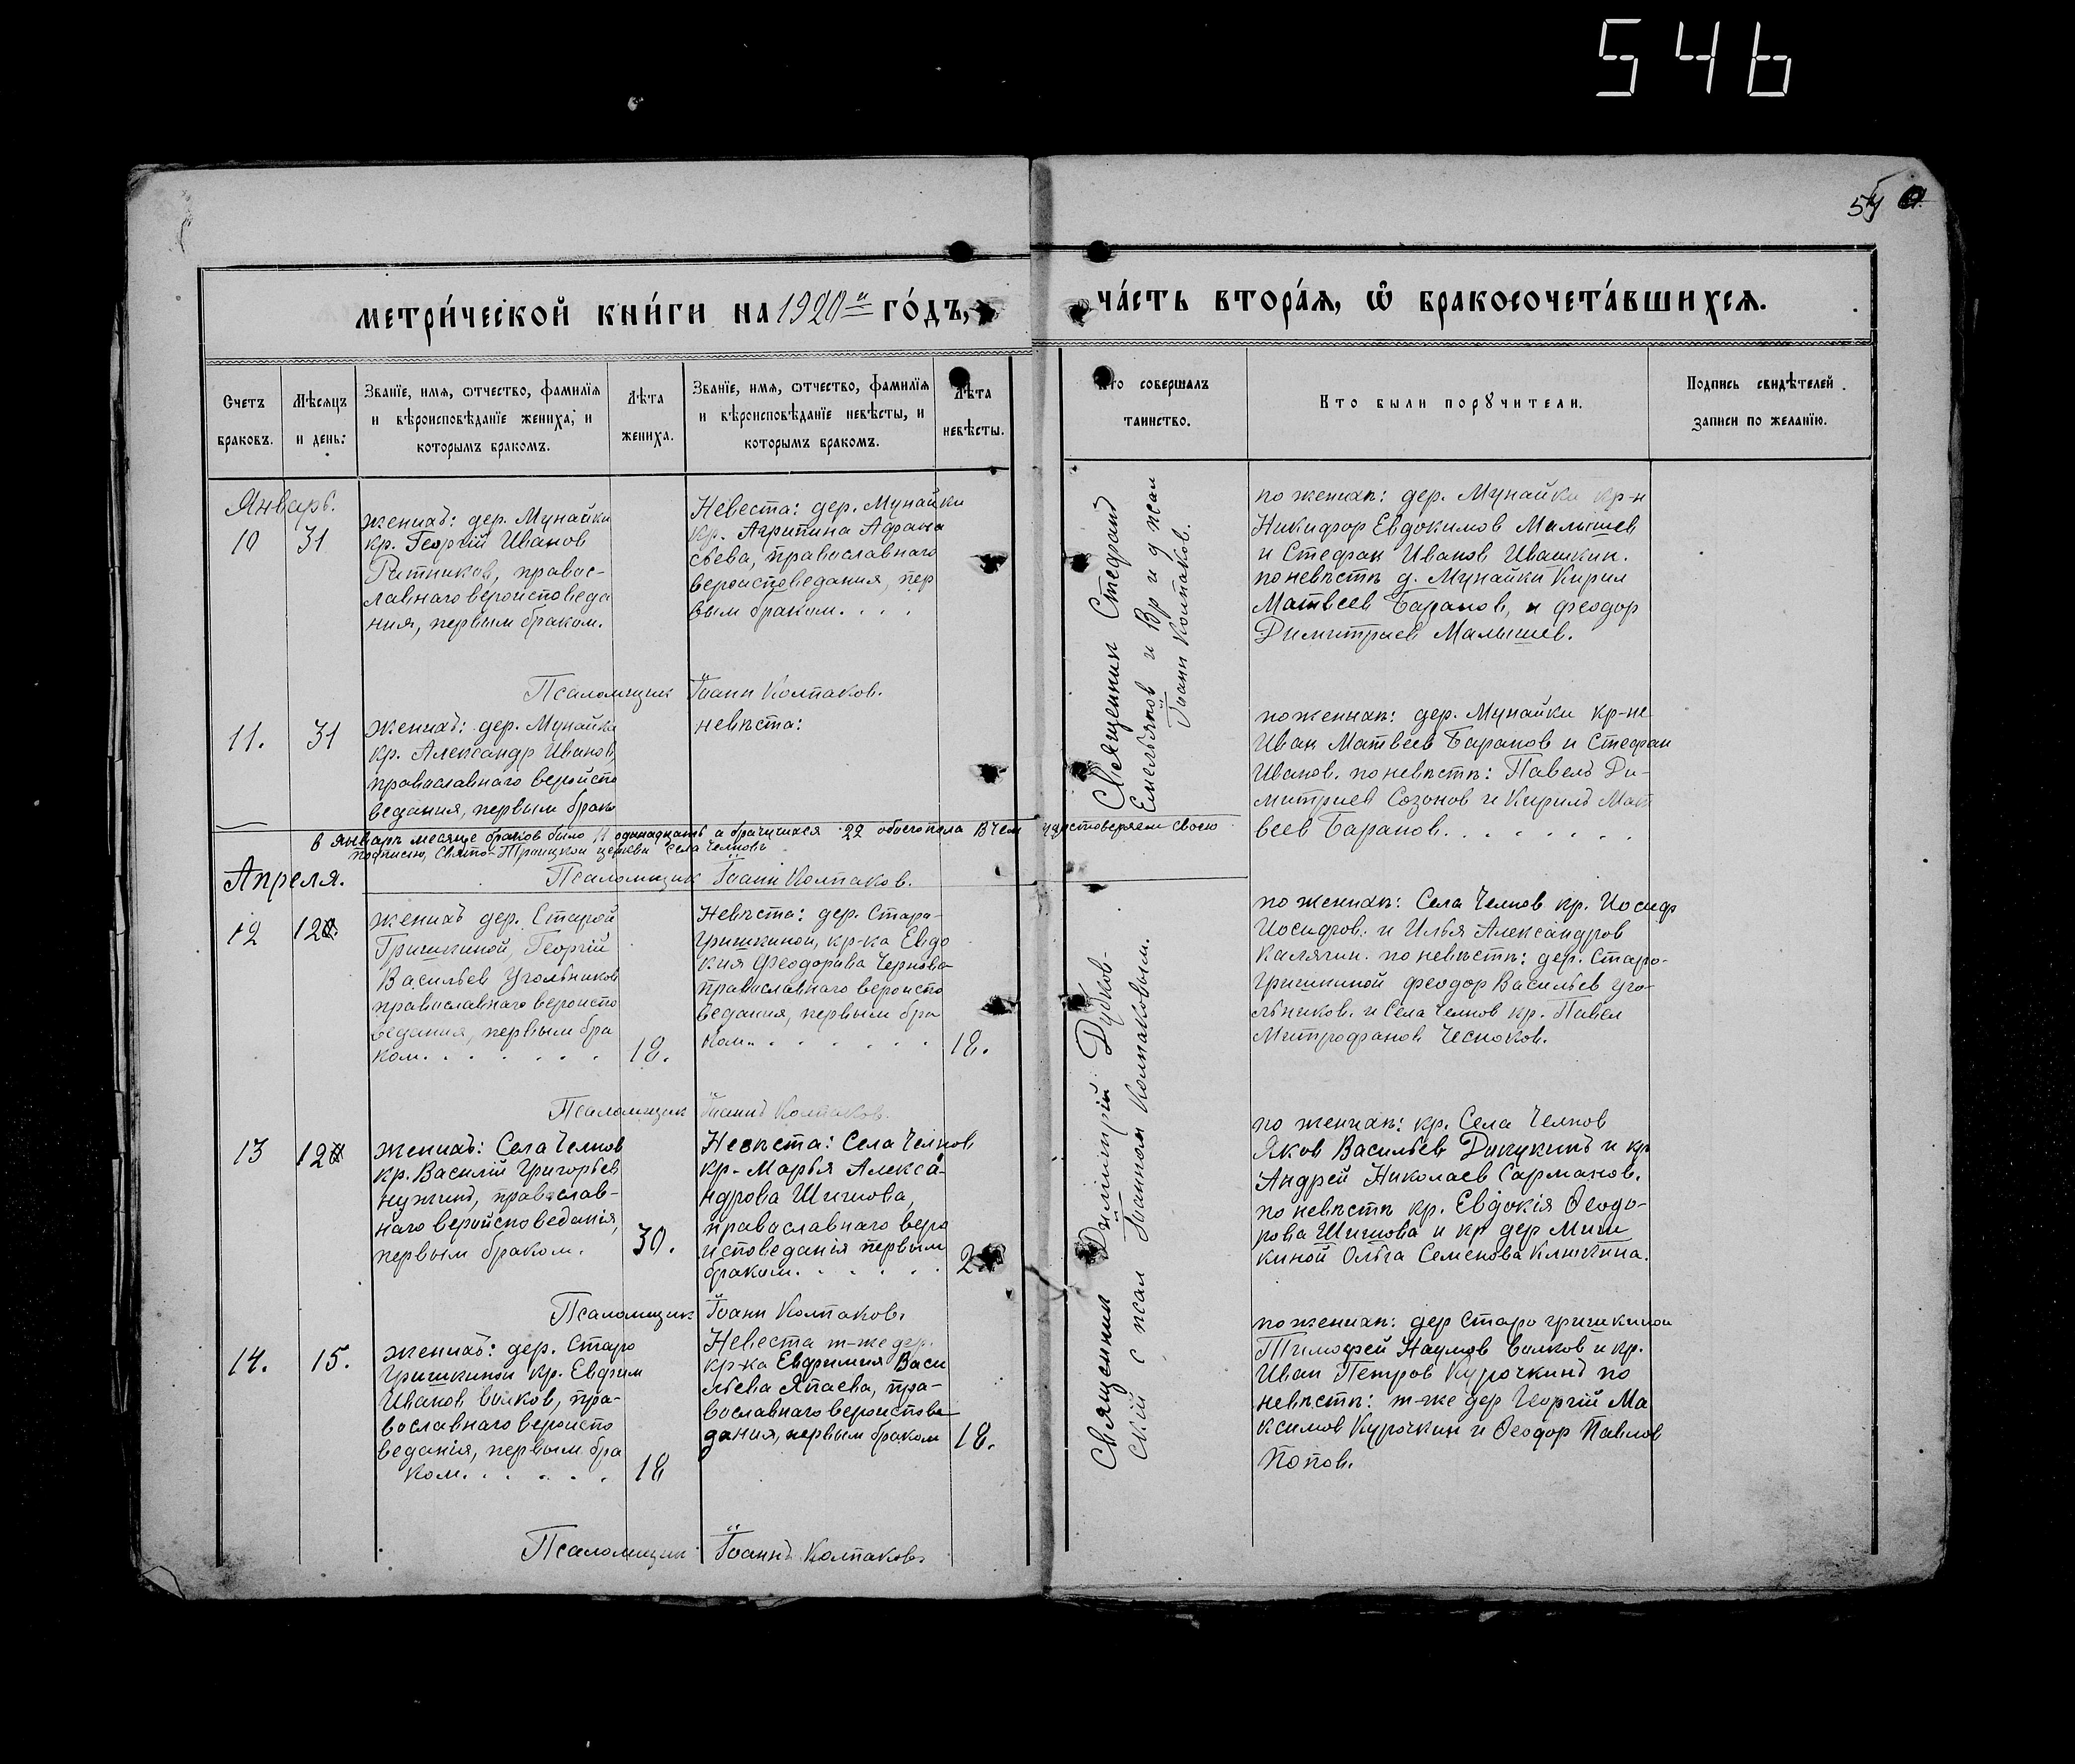 546
метри́ческой кни́ги на 1920й го́дъ,
ча́сть втора́я, ѡ҆ бракосочета́вшихся.
Счетъ браковъ.
Мѣсяцъ и день.
Званїе, имѧ, ѿтчество, фамилїѧ и вѣроисповѣданїе жениха, и которымъ бракомъ.
Лѣта жениха.
Званїе, имѧ, ѿтчество, фамилїѧ и вѣроисповѣданїе невѣсты, и которымъ бракомъ.
Лѣта невѣсты.
Кто совершалъ таинство.
Кто были порꙋчители.
Подпись свидѣтелей записи по желанїю.
Январь.
10 31
жених: дер. Мунайки
кр. Георгій Иванов
Ратников, правос-
лавнаго вероисповеда
ния, первым браком.
Невеста: дер. Мунайки
кр. Агрипина Афана
сьева, православнаго
вероисповедания, пер
вым браком. . . .
Священник Стефанъ
Емельянов и Вр и д псал
Іоанн Колпаков.
по женихѣ: дер. Мунайки кр-н
Никифор Евдокимов Малышев
и Стефан Иванов Ивашкин.
по невѣстѣ д. Мунайки Кирил
Матвеев Баранов, и Феодор
Димитриев Малышев.
Псаломщик Іоанн Колпаков.
11. 31
женихъ: дер. Мунайки
кр. Александр Иванов,
православнаго вероиспо
ведания, первым брако
невѣста:
по женихѣ: дер. Мунайки кр-не
Иван Матвеев Баранов и Стефан
Иванов. по невѣстѣ: Павелъ Ди-
митриев Созонов и Кирилъ Мат
веев Баранов. . . . . . . .
в январѣ месяце браков было 11 одинадцать а брачущихся 22 обоего пола в чем удостоверяем своею
подписью, Свято-Троицкой церкви села Челновъ
Псаломщик Іоанн Колпаков.
Апреля.
12 12
женихъ дер. Старой
Гришкиной, Георгій
Васильев Угольников
православнаго вероиспо
ведания, первым бра
ком. . . . . . . 18.
Невѣста: дер. Старо-
гришкиной, кр-ка Евдо
кия Феодорова Чернова
православнаго вероиспо
ведания, первым бра
ком. . . . . . . 18.
Священник Димитрій Дубков-
ский с псал Іоанном Колпаковым.
по женихѣ: Села Челнов кр. Иосиф
Иосифов. и Илья Александров
Калягин. по невѣстѣ: дер. Старо-
гришкиной Феодор Васильев Уго-
льников. и Села Челнов кр. Павел
Митрофанов Чесноков.
Псаломщик Іоаннъ Колпаков.
13 12
женихъ: Села Челнов
кр. Василій Григорьев
нужинъ, православ-
наго вероисповеданія,
первым браком. 30.
Невѣста: Села Челнов
кр- Марья Алекса-
ндрова Шишова,
православнаго веро
исповеданія первым
браком. . . . . .
по женихѣ: кр. Села Челнов
Яков Васильев Дикукинъ и кр
Андрей Николаев Сарманов.
по невѣстѣ кр. Евдокія Ѳеодо-
рова Шишова и кр дер Миш
киной Ольга Семенова Клюкина.
Псаломщик Іоанн Колпаков.
14. 15.
женихъ: дер. Старо
гришкиной кр. Евфим
Иванов Волков, пра-
вославнаго вероиспо
веданія, первым бра
ком. . . . . . 18
Невеста т-же дер.
кр-ка Евфимия Васи
льева Япаева, пра-
вославнаго вероиспове
дания, первым браком 18.
по женихѣ: дер Старо гришкиной
Тимофей Наумов Волков и кр.
Иван Петров Курочкинъ по
невѣстѣ: т-же дер Георгій Ма
ксимов Курочкин и Ѳеодор Павлов
Попов.
Псаломщик Іоаннъ Колпаков.